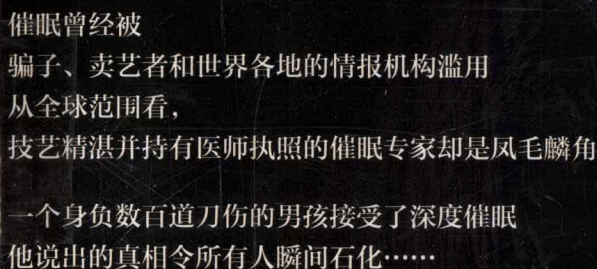 催眠曾经被
骗子、卖艺者和世界各地的情报机构滥用
从全球范围看，
技艺精湛并持有医师执照的催眠专家却是凤毛麟角
一个身负数百道刀伤的男孩接受了深度催眠
他说出的真相令所有人瞬间石化……